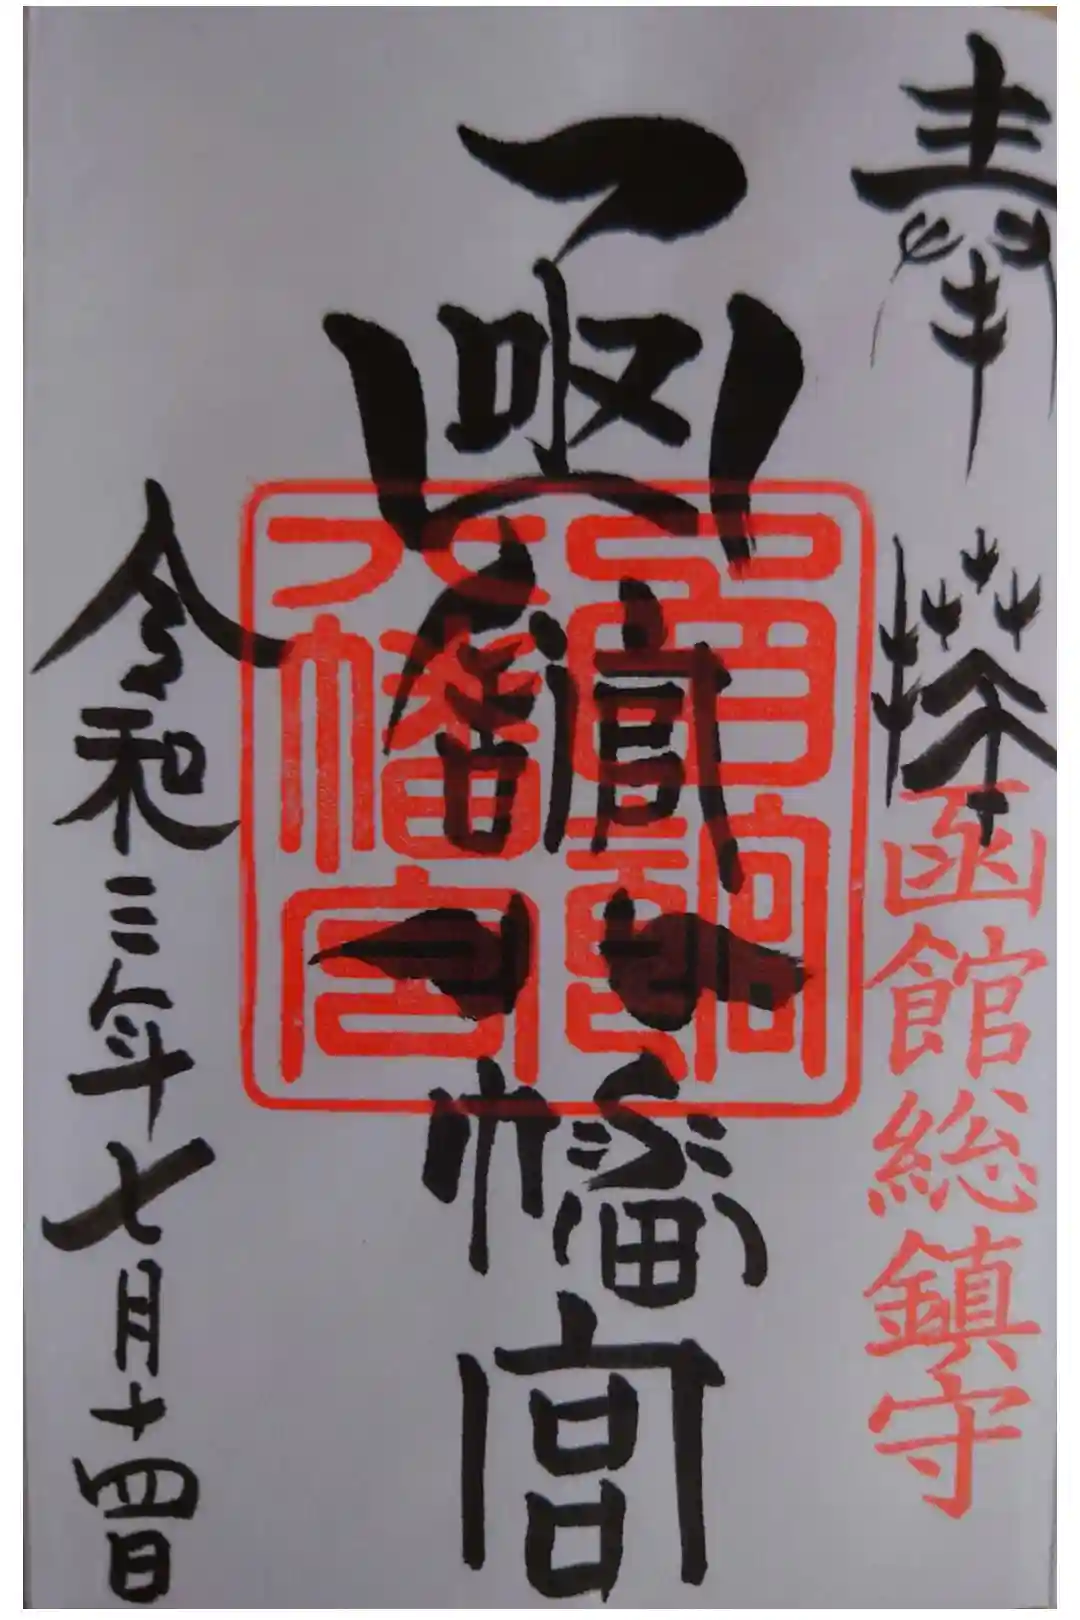 奉拝
函館総鎮守
函館八幡宮
八幡宮
令和三年七月十四日